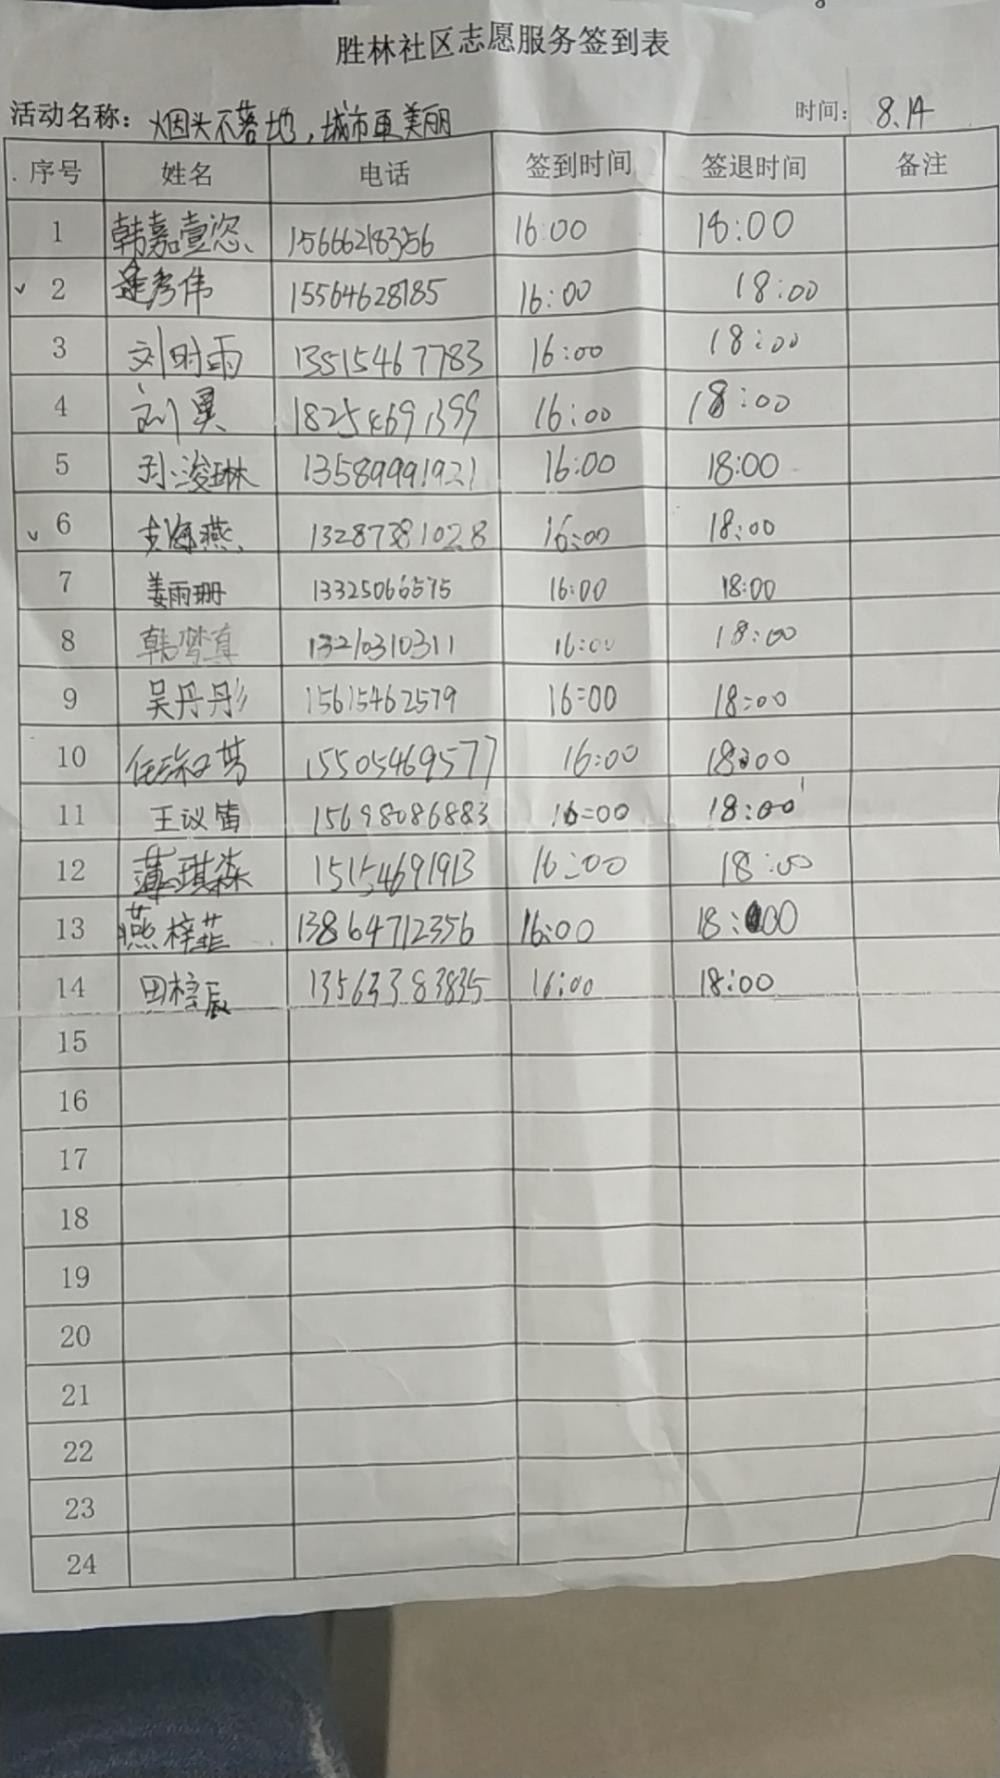 胜林社区志愿服务签到表
活动名称: 烟头不落地,城市更美丽 时间: 8.14
序号 姓名 电话 签到时间 签退时间 备注
1 韩嘉壹恣 15666218356 16:00 18:00
✓ 2 逄彦伟 15564628185 16:00 18:00
3 刘时雨 13515467783 16:00 18:00
4 刘昊 18254691399 16:00 18:00
5 孙浚琳 13589991921 16:00 18:00
✓ 6 海燕 13287381028 16:00 18:00
7 姜雨珊 13325066575 16:00 18:00
8 韩梦真 13210310311 16:00 18:00
9 吴丹彤 15615462579 16:00 18:00
10 任 15505469577 16:00 18:00
11 王议雷 15698086883 16:00 18:00
12 薄琪淼 15154691913 16:00 18:00
13 燕梓菲 13864712356 16:00 18:00
14 田梓辰 13563383835 16:00 18:00
15
16
17
18
19
20
21
22
23
24